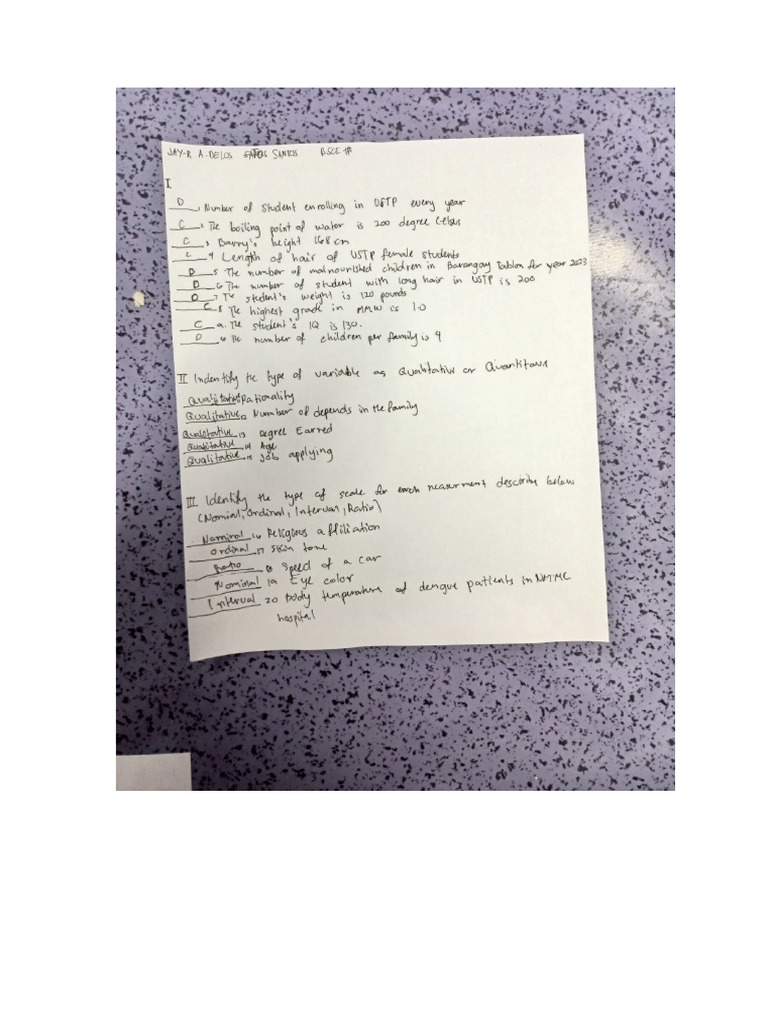 JAY-R A. DELOS SANTOS BSCE 1A
I
D 1 Number of student enrolling in USTP every year
C 2 The boiling point of water is 200 degree Celsius
C 3 Barry's height 168 cm
C 4 Length of hair of USTP female students
D 5 The number of malnourished children in Barangay Tablon for year 2023
D 6 The number of student with long hair in USTP is 200
D 7 The student's weight is 120 pounds
C 8 The highest grade in MMW is 1.0
C 9. The student's IQ is 130.
D 10 The number of children per family is 4
II Indentify the type of variable as Qualitative or Quantitave
Qualitative 11 Nationality
Qualitative 12 Number of depends in the family
Qualitative 13 Degree Earred
Qualitative 14 Age
Qualitative 15 Job applying
III Identify the type of scale for each measurment describe below
(Nominal, Ordinal, Interval, Ratio)
Nominal 16 Religious affiliation
Ordinal 17 Skin tone
Ratio 18 Speed of a car
Nominal 19 Eye color
Interval 20 Body temperature of dengue patients in NMMC
hospital